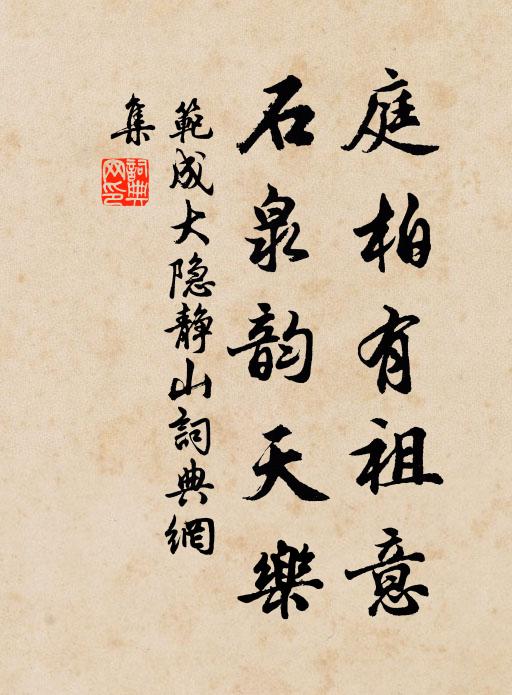 庭柏有祖意
石泉韵天樂
範成大隐静山詞典網
集
詞典
网印